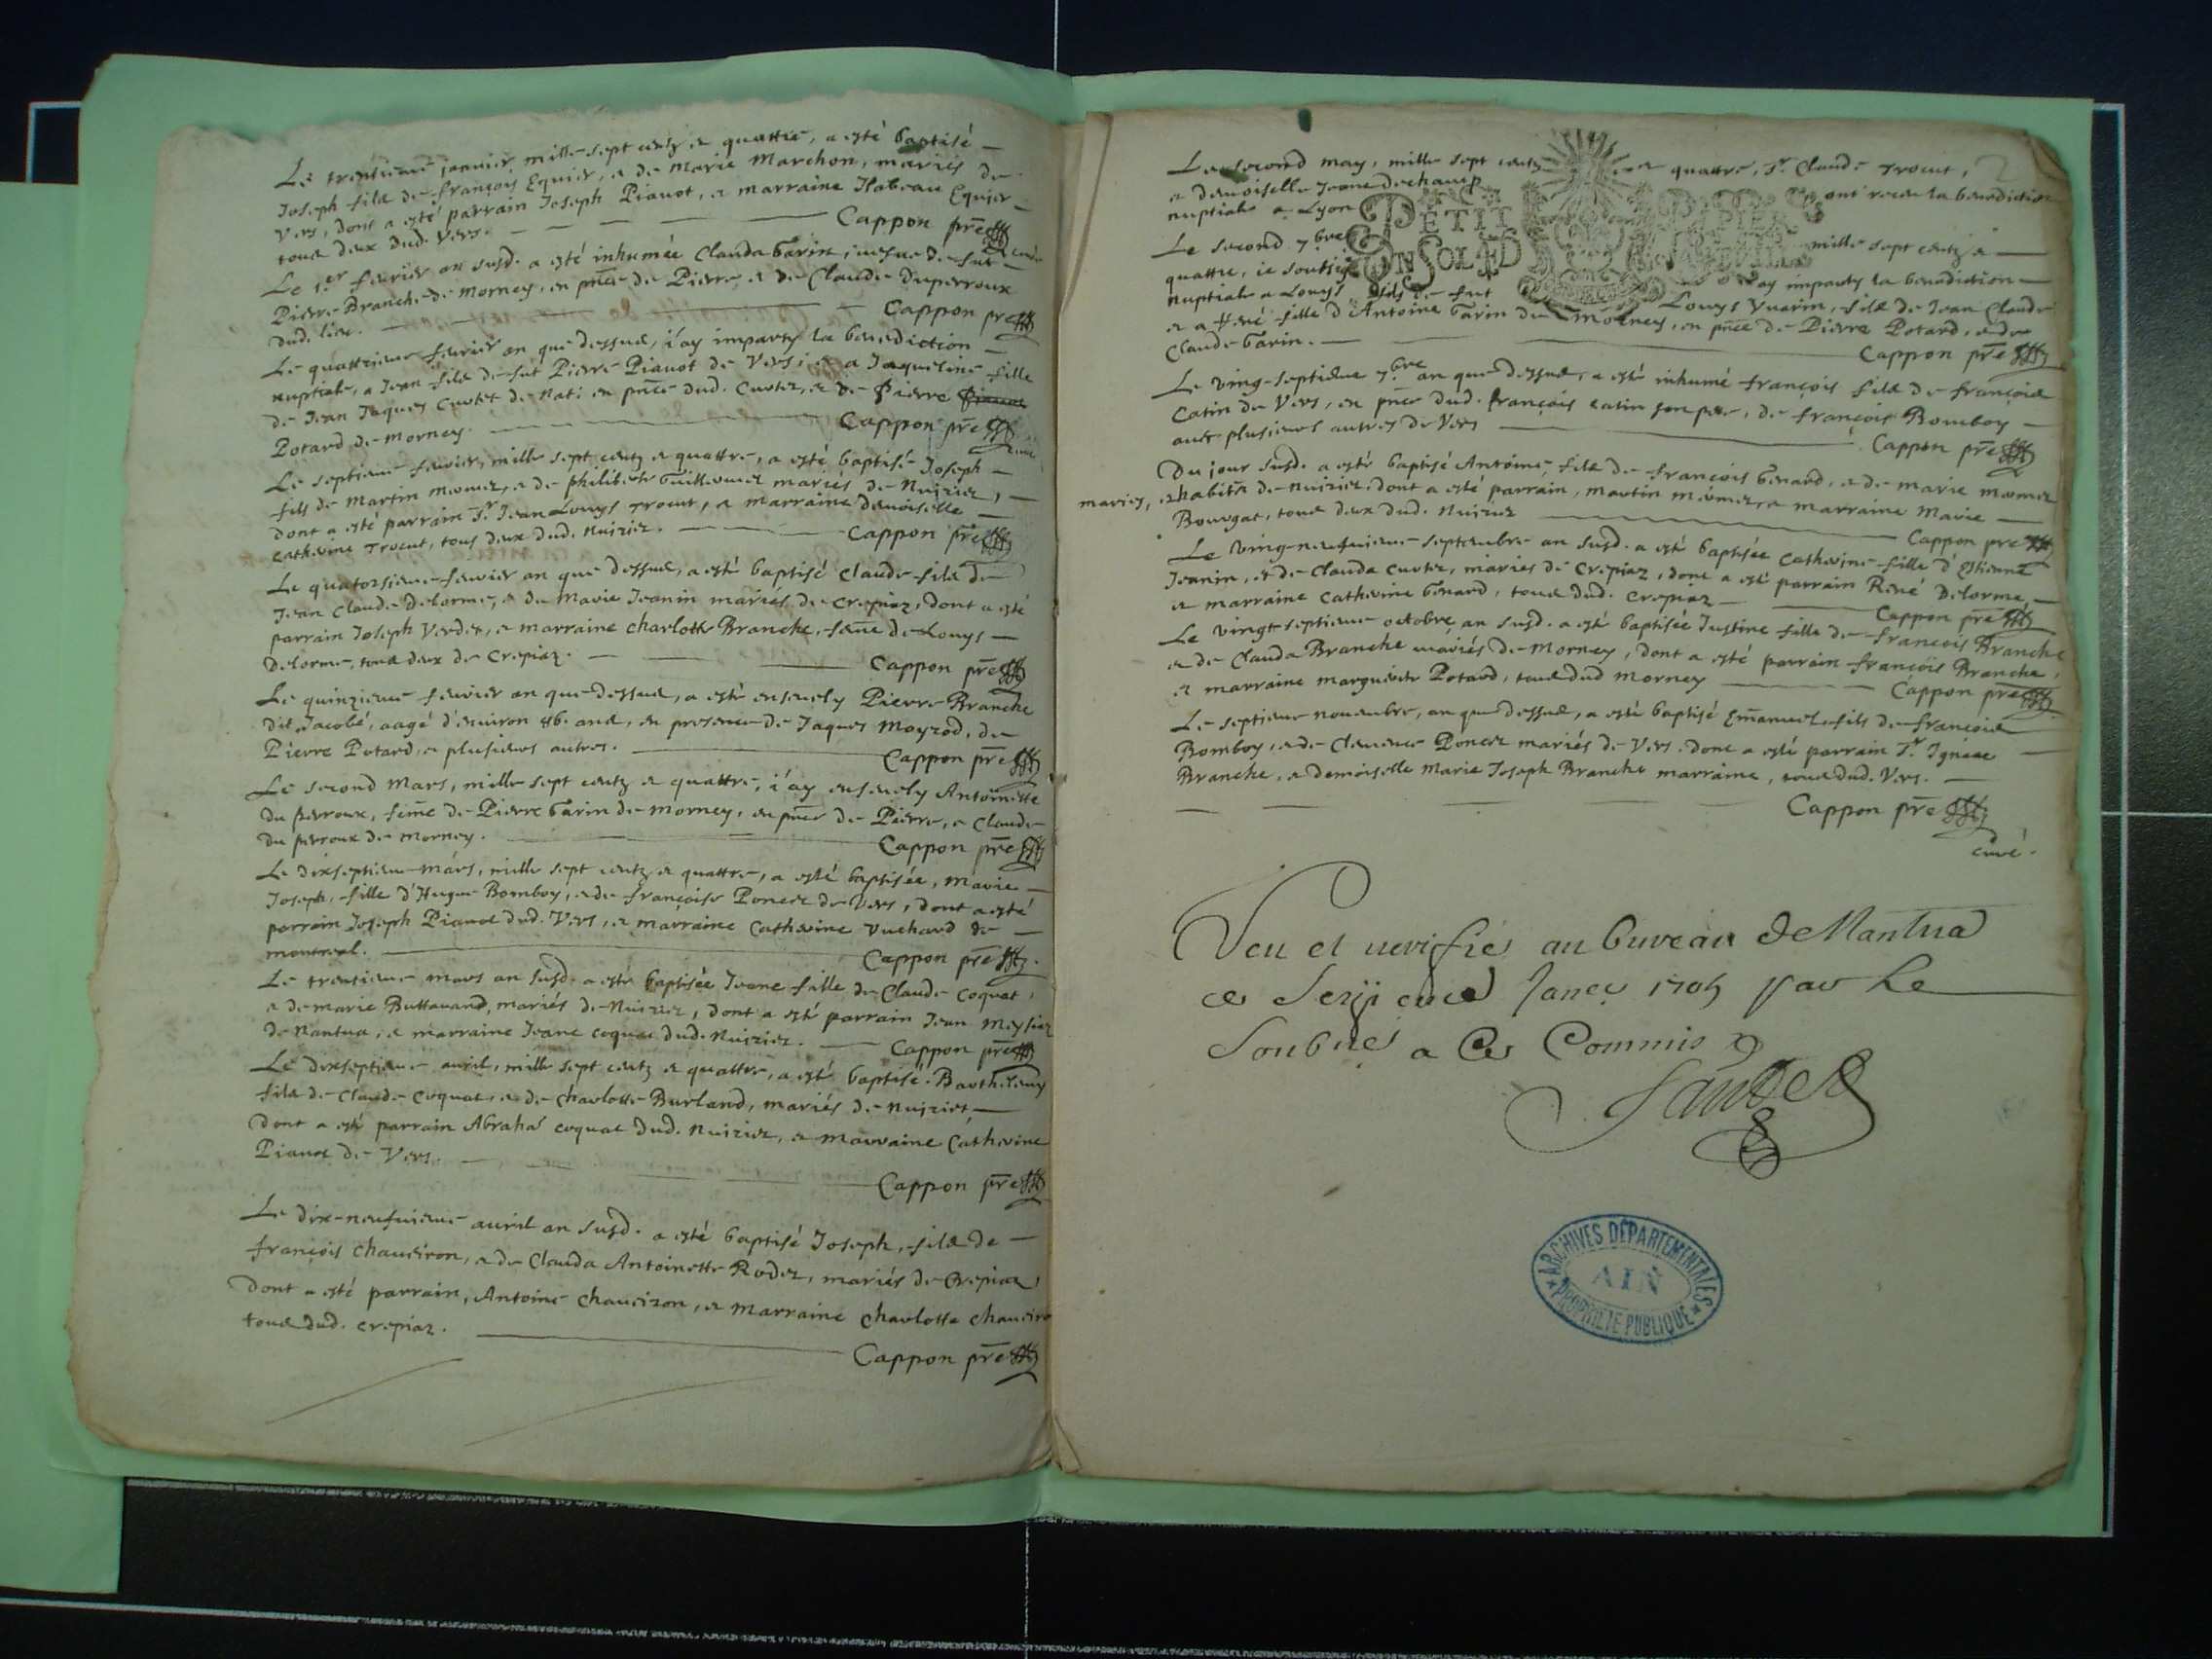 Le trentieme janvier mille sept centz et quattre, a esté baptisé
Joseph fils de françois Equier, et de Marie Marchon, mariés de
Vers, dont a esté parrain Joseph Pianot, et marraine Isabeau Equier
tous deux dud. Vers. Cappon pre
curé
Le 1er fevrier an susd. a esté inhumée Clauda Garin, vefve de fut
Pierre Branche de Morney, en pnce de Pierre, et de Claude Duperroux
dud. lieu. Cappon pre
Le quattrieme fevrier an que dessus, i'ay imparty la benediction
nuptiale, a Jean fils de fut Pierre Pianot de Vers, et a Jaqueline fille
de Jean Jaques Curtet de Nati en pnce dud. Curtez, et de Pierre
Potard de Morney. Cappon pre
curé
Le septieme fevrier, mille sept centz et quattre, a esté baptisé Joseph
fils de Martin Mermez, et de philiberte Guillermez mariés de Nuiriez,
dont a esté parrain Sr Jean Louys Trocut, et marraine demoiselle
Catherine Trocut, tous deux dud. Nuiriez. Cappon pre
Le quatorsieme fevrier an que dessus, a esté baptisé Claude fils de
Jean Claude Delorme, et de Marie Jeanin mariés de Crepiaz, dont a esté
parrain Joseph Verdet, et marraine Charlotte Branche, feme de Louys
Delorme, tous deux de Crepiaz. Cappon pre
Le quinzieme fevrier an que dessus, a esté ensevely Pierre Branche
dit Jacobé, aagé d'environ 86. ans, en presence de Jaques Moyrod, de
Pierre Potard, et plusieurs autres. Cappon pre
Le second Mars, mille sept centz et quattre, i'ay ensevely Antoinette
du perroux, feme de Pierre Garin de Morney, en pnce de Pierre, et Claude
du perroux de Morney. Cappon pre
Le dixseptieme Mars, mille sept centz et quattre, a esté baptisée, Marie
Joseph, fille d'Hugue Bomboy, et de françoise Poncet de Vers, dont a esté
parrain Joseph Pianot dud. Vers, et marraine Catherine Vuchard de
montreal. Cappon pre
Le trentieme mars an susd. a esté baptisée Jeane fille de Claude Coquat
et de marie Buttavand, mariés de Nuiriez, dont a esté parrain Jean Meysiat
de Nantua, et marraine Jeane coquat dud. Nuiriez. Cappon pre
Le dixseptieme avril, mille sept centz et quattre, a esté baptisé Barthelemy
fils de Claude Coquat, et de Charlotte Burland, mariés de Nuiriet,
dont a esté parrain Abraha coquat dud. Nuiriez, et marraine Catherine
Pianot de Vers.
Cappon pre
Le dix-neufvieme avril an susd. a esté baptisé Joseph, fils de
françois Chaveiron, et de Clauda Antoinette Rodet, mariés de Crepiaz
dont a esté parrain, Antoine Chaveiron, et marraine Charlotte Chaveiro
tous dud. crepiaz.
Cappon pre
2
Le second may, mille sept centz et quattre, Sr Claude Trocut,
et demoiselle Jeane dechamp ont receu la benediction
nuptiale a Lyon
PETIT PAPIER
UN SOL 4 D
Le second 7bre mille sept centz et
quattre, ie soubsig ay imparty la benediction
nuptiale a Louys fils de fut Louys Vuarin, fils de Jean Claude
et a René fille d'Antoine Garin de Morney, en pnce de Pierre Potard, et de
Claude Garin. Cappon pre
Le ving-septieme 7bre an que dessus, a esté inhumé françois fils de françois
Catin de Vers, en pnce dud. françois Catin son pere, de françois Bomboy
avec plusieurs autres de Vers Cappon pre
Du jour susd. a esté baptisé Antoine, fils de françois Genard, et de marie mermez
mariez, et habitts de Nuiriez, dont a esté parrain, martin mermez, et marraine Marie
Bourgat, tous deux dud. Nuiriez Cappon pre
Le ving-neufvieme septembre an susd. a esté baptisée Catherine fille d'Estienne
Jeanin, et de Clauda Curtez, mariés de Crepiaz, dont a esté parrain René Delorme,
et marraine Catherine Genard, tous dud. Crepiaz Cappon pre
Le vingt septieme octobre an susd. a esté baptisée Justine fille de françois Branche
et de Clauda Branche mariés de Morney, dont a esté parrain françois Branche,
et marraine marguerite Potard, tous dud Morney Cappon pre
Le septieme novembre, an que dessus, a esté baptisé Emanuel fils de françois
Bomboy, et de Clemence Poncet mariés de Vers. dont a esté parrain Sr Ignace
Branche, et demoiselle Marie Joseph Branche marraine, tous dud. Vers.
Cappon pre
curé.
Veu et veriffié au bureau de Nantua
ce Janer 1705 par Le
Soubné a Ces Commis
ARCHIVES DÉPARTEMENTALES
AIN
PROPRIÉTÉ PUBLIQUE